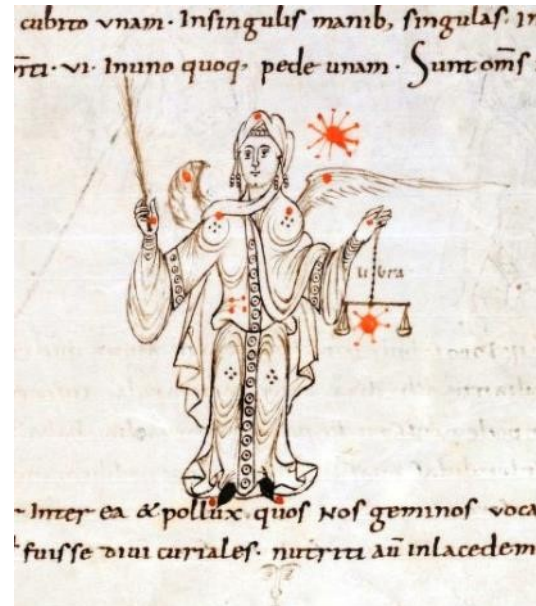 cubito vnam· Insingulis manib; singulas· In
vi· Inuno quoq; pede unam· Sunt om̄s
libra
Inter ea & pollux· quos nos geminos voca
fuisse diui curiales· nutriti au̅ inlacedem